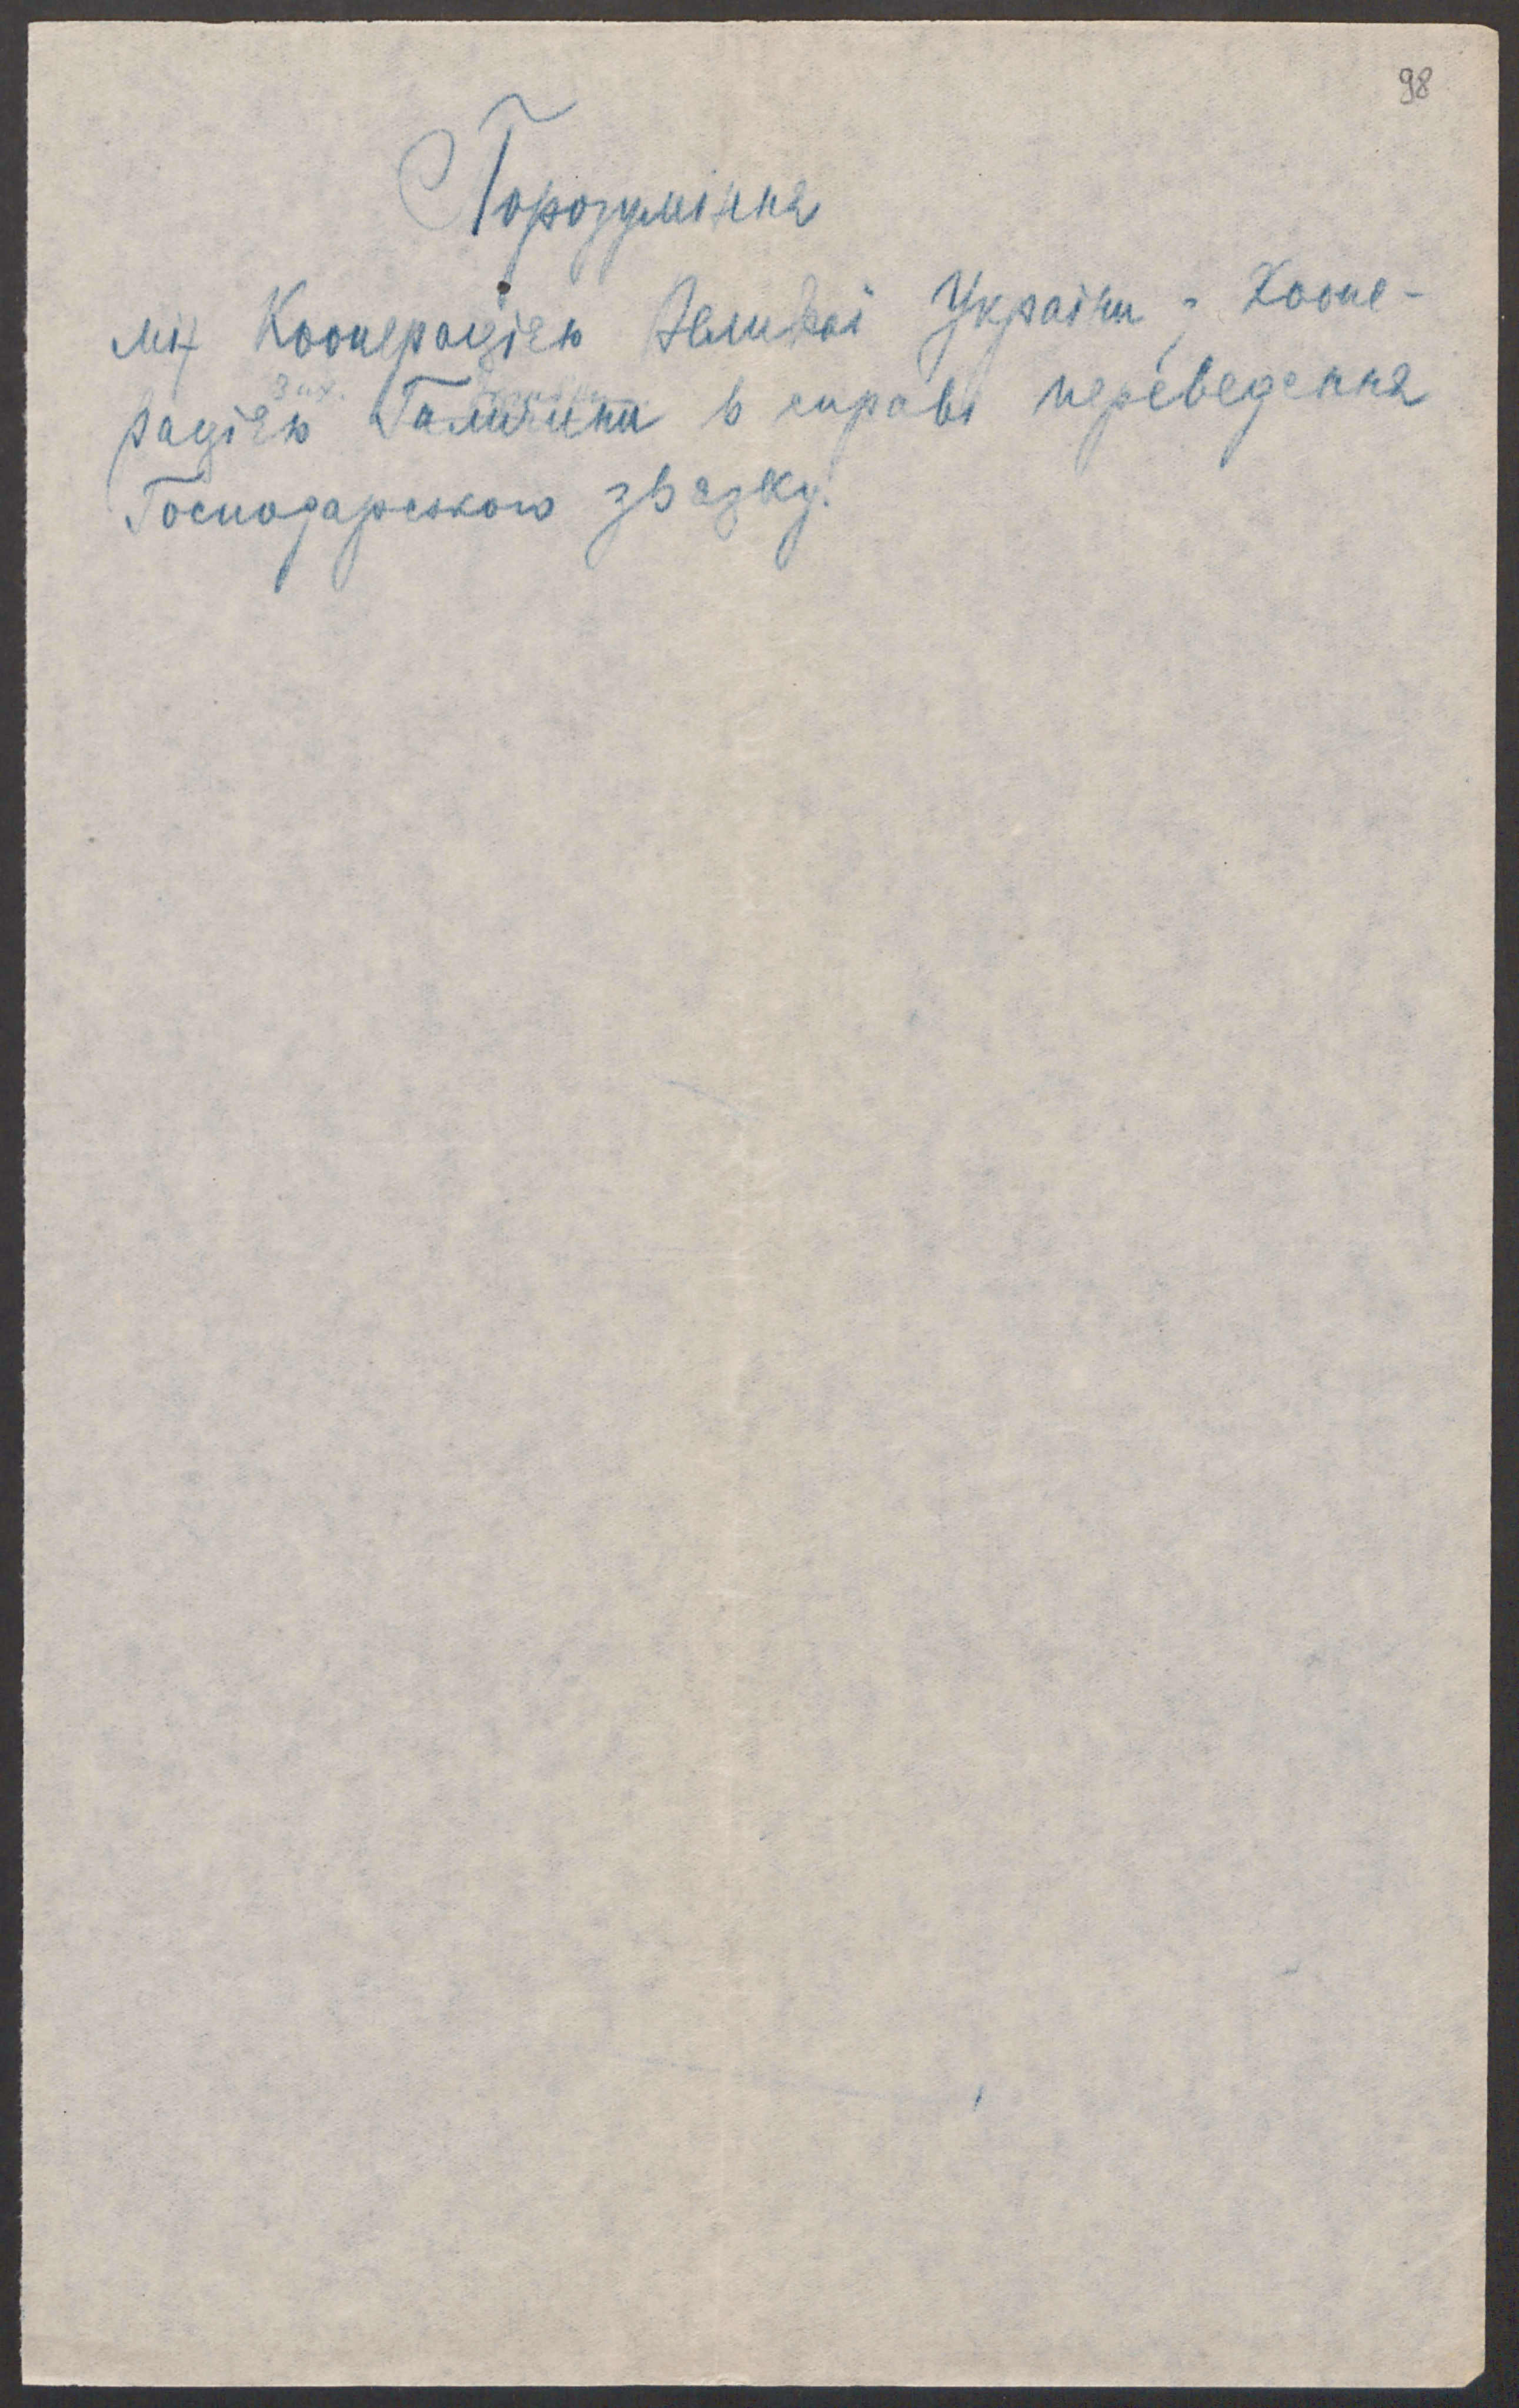 98
Порозуміння
міх Кооперацією Великої України і Коопе-
Зах.
рацією Галичини в справі переведення
Господарського звязку.